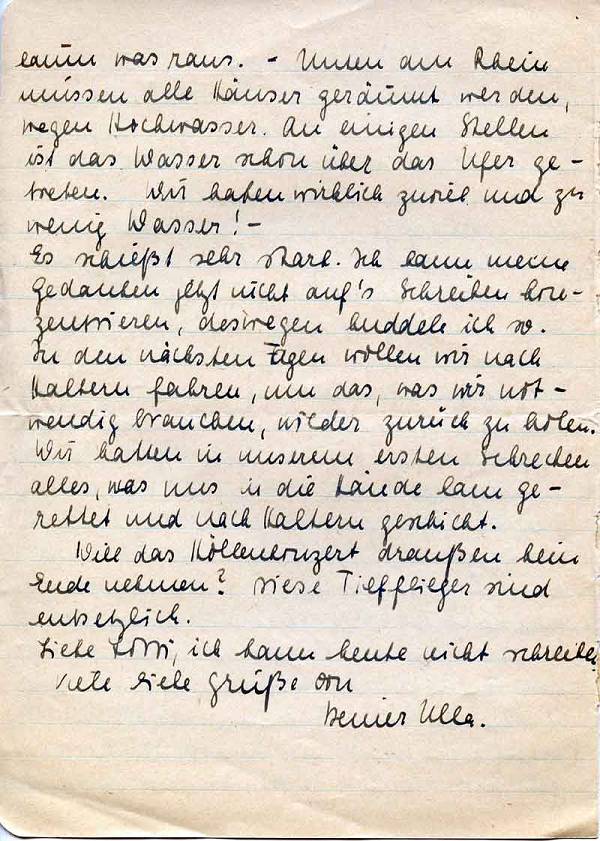 kaum was raus. - Unten am Rhein
müssen alle Häuser geräumt werden,
wegen Hochwasser. An einigen Stellen
ist das Wasser schon über das Ufer ge-
treten. Wir haben wirklich zuviel und zu
wenig Wasser! -
Es schießt sehr stark. Ich kann meine
Gedanken jetzt nicht auf's Schreiben kon-
zentrieren, deswegen huddele ich so.
In den nächsten Tagen wollen wir nach
Haltern fahren, um das, was wir not-
wendig brauchen, wieder zurück zu holen.
Wir hatten in unserem ersten Schrecken
alles, was uns in die Hände kam ge-
rettet und nach Haltern geschickt.
Will das Höllenkonzert draußen kein
Ende nehmen? Diese Tiefflieger sind
entsetzlich.
Liebe Lotti, ich kann heute nicht schreiben.
Viele liebe Grüße von
Deiner Ulla.